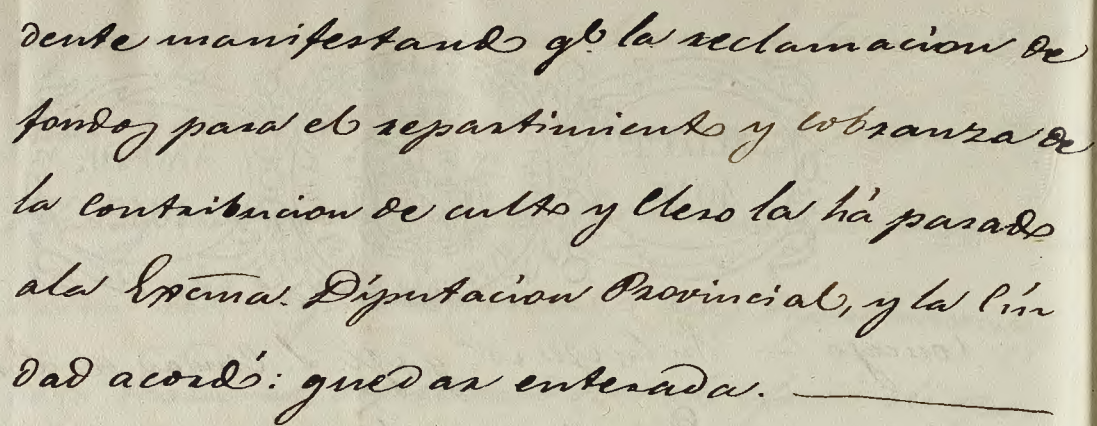 dente manifestando qe. la reclamacion de
fondos para el repartimiento y cobranza de
la contribucion de culto y Clero la há pasado
ala Excma. Diputacion Provincial, y la Ciu
dad acordó: quedar enterada.